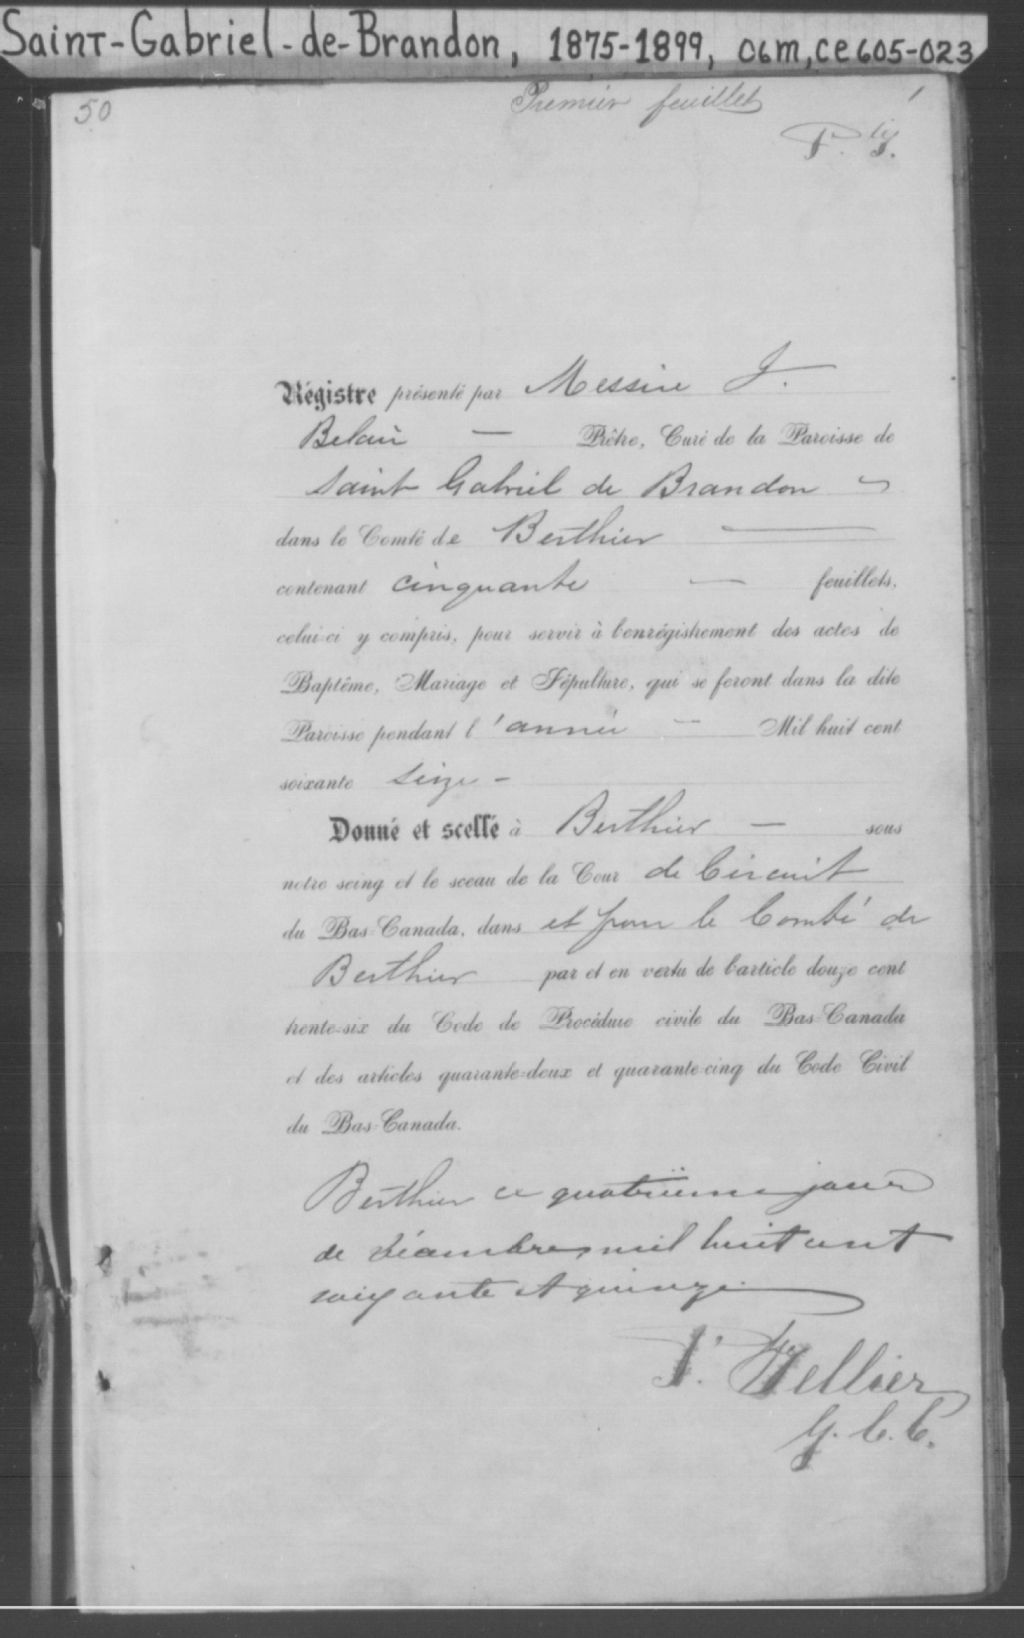 Saint-Gabriel-de-Brandon, 1875-1899, 06m,ce605-023
50
Premier feuillet
1
Régistre présenté par Messire J.
Belair — Prêtre, Curé de la Paroisse de
Saint Gabriel de Brandon
dans le Comté de Berthier —
contenant cinquante — feuillets,
celui-ci y compris, pour servir à l'enrégistrement des actes de
Baptême, Mariage et Sépulture, qui se feront dans la dite
Paroisse pendant l'année — Mil huit cent
soixante seize —
Donné et scellé à Berthier — sous
notre seing et le sceau de la Cour de Circuit
du Bas-Canada, dans et pour le Comté de
Berthier par et en vertu de l'article douze cent
trente-six du Code de Procédure civile du Bas-Canada
et des articles quarante-deux et quarante-cinq du Code Civil
du Bas-Canada.
Berthier ce quatrième jour
de décembre mil huit cent
soixante et quinze
P. Tellier
G. C. C.